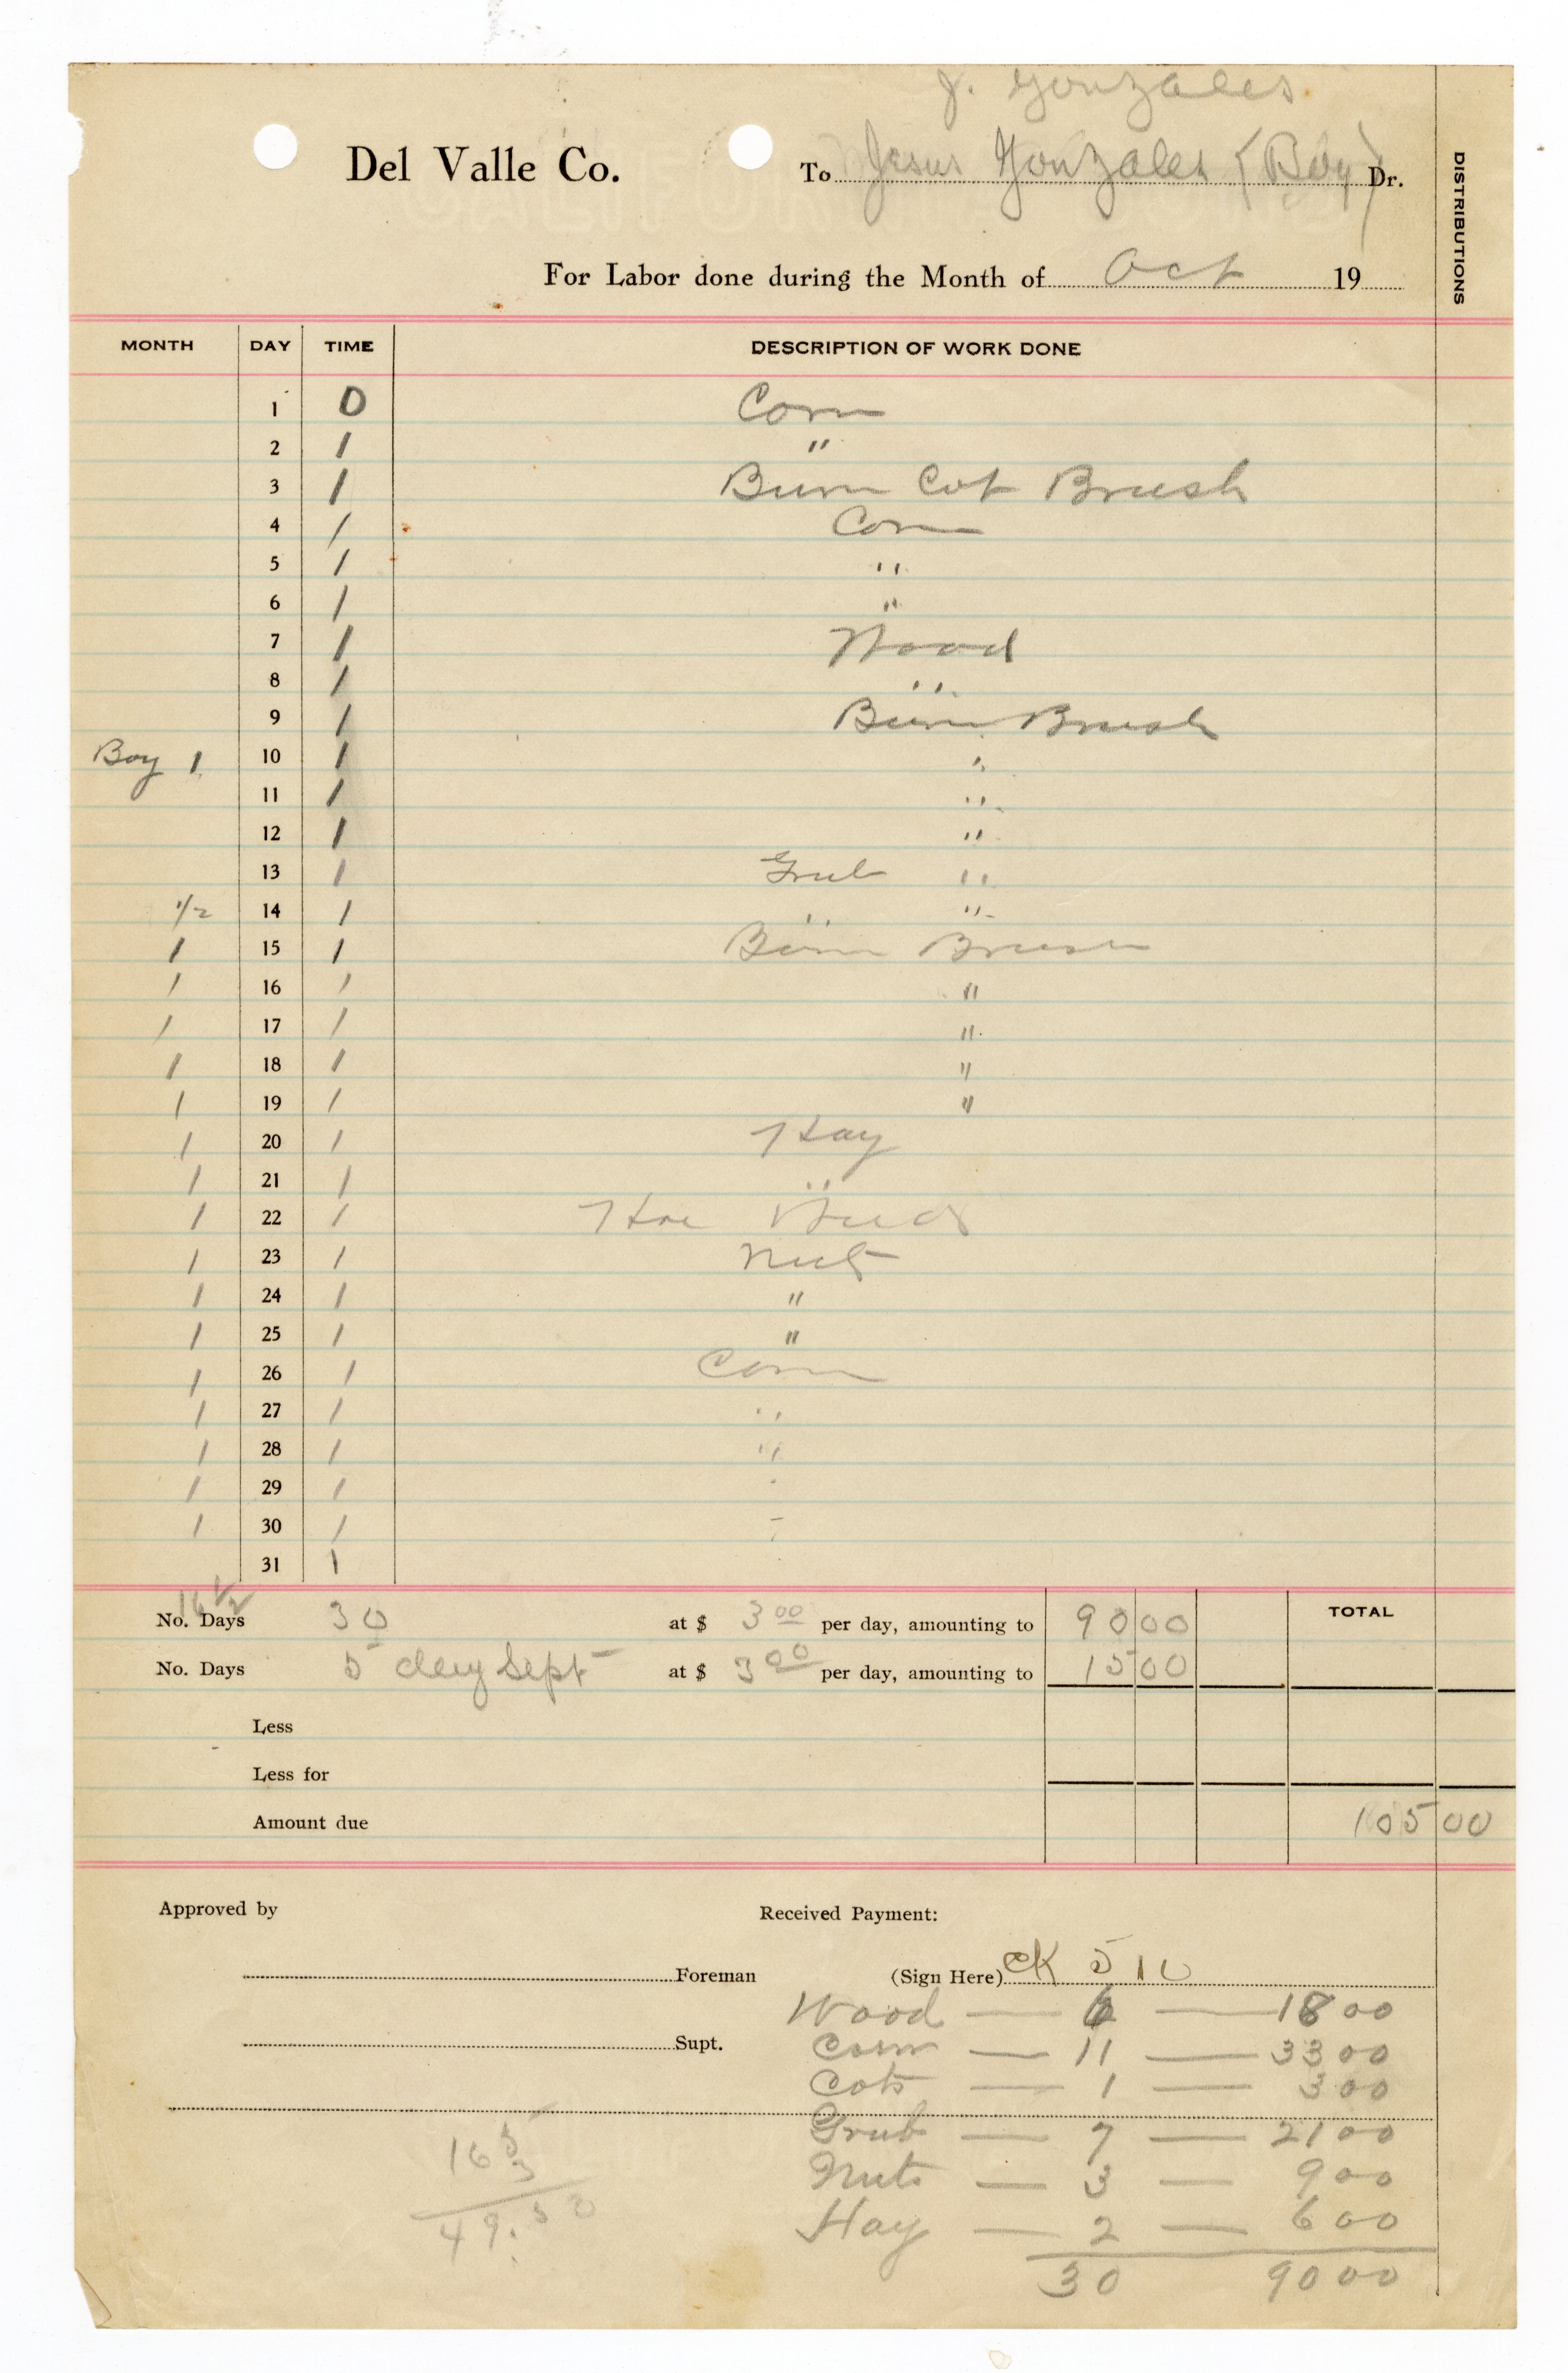 J. Gonzales
Del Valle Co. To Jesus Gonzales (Boy) Dr.
DISTRIBUTIONS
For Labor done during the Month of Oct 19
MONTH DAY TIME DESCRIPTION OF WORK DONE
1 0 Corn
2 1 "
3 1 Burn Cot Brush
4 1 Corn
5 1 "
6 1 "
7 1 Wood
8 1 "
9 1 Burn Brush
Boy 1 10 1 "
11 1 "
12 1 "
13 1 Grub "
1/2 14 1 " "
1 15 1 Burn Brush
1 16 1 "
1 17 1 "
1 18 1 "
1 19 1 "
1 20 1 Hay
1 21 1 "
1 22 1 Hoe
1 23 1 Nut
1 24 1 "
1 25 1 "
1 26 1 Corn
1 27 1 "
1 28 1 "
1 29 1 "
1 30 1 "
31 1
16 1/2
No. Days 30 at $ 3 00 per day, amounting to 90 00 TOTAL
No. Days 5 day Sept at $ 3 00 per day, amounting to 15 00
Less
Less for
Amount due 105 00
Approved by Received Payment:
Foreman (Sign Here) CK 510
Wood — 6 — 18 00
Supt. Corn — 11 — 33 00
Cots — 1 — 3 00
Grub — 7 — 21 00
16 5 Nuts — 3 — 9 00
3
49.50 Hay — 2 — 6 00
30 90 00